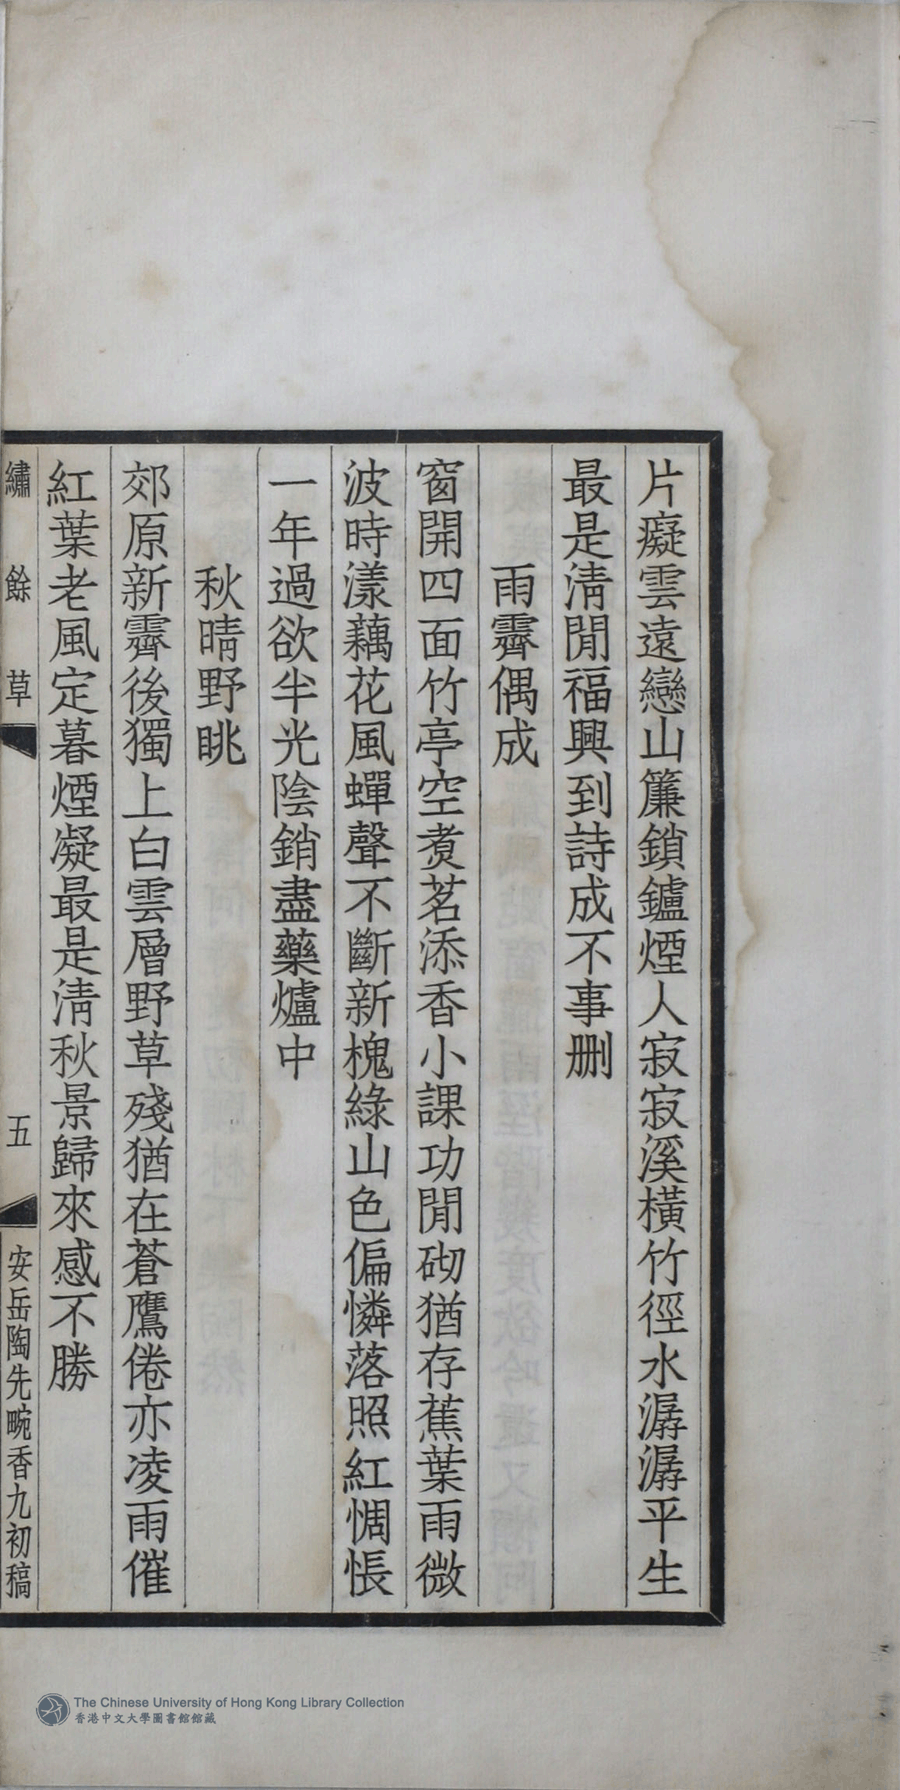 片癡雲遠戀山簾鎖鑪煙人寂寂溪橫竹徑水潺潺平生
最是淸閒福興到詩成不事删
雨霽偶成
窗開四面竹亭空煑茗添香小課功閒砌猶存蕉葉雨微
波時漾藕花風蟬聲不斷新槐綠山色偏憐落照紅惆悵
一年過欲半光陰銷盡藥爐中
秋晴野眺
郊原新霽後獨上白雲層野草殘猶在蒼鷹倦亦凌雨催
紅葉老風定暮煙凝最是淸秋景歸來感不勝
繡餘草 五 安岳陶先畹香九初稿
The Chinese University of Hong Kong Library Collection
香港中文大學圖書館館藏